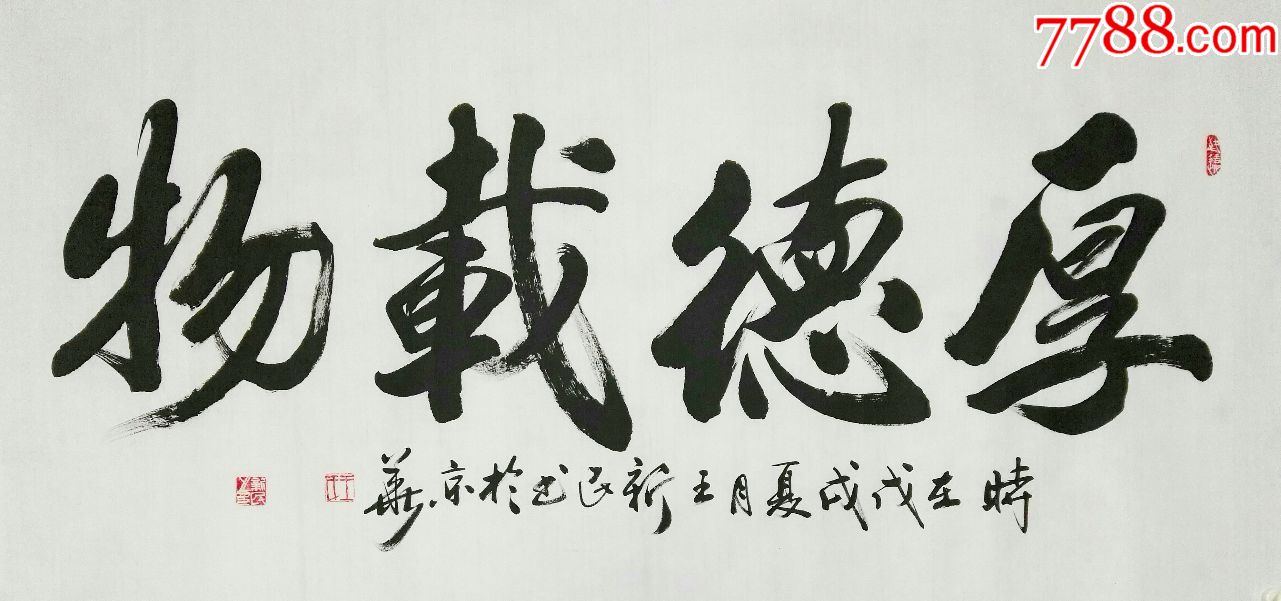 7788.com
厚德載物
時在戊戌夏月王新民书於京華